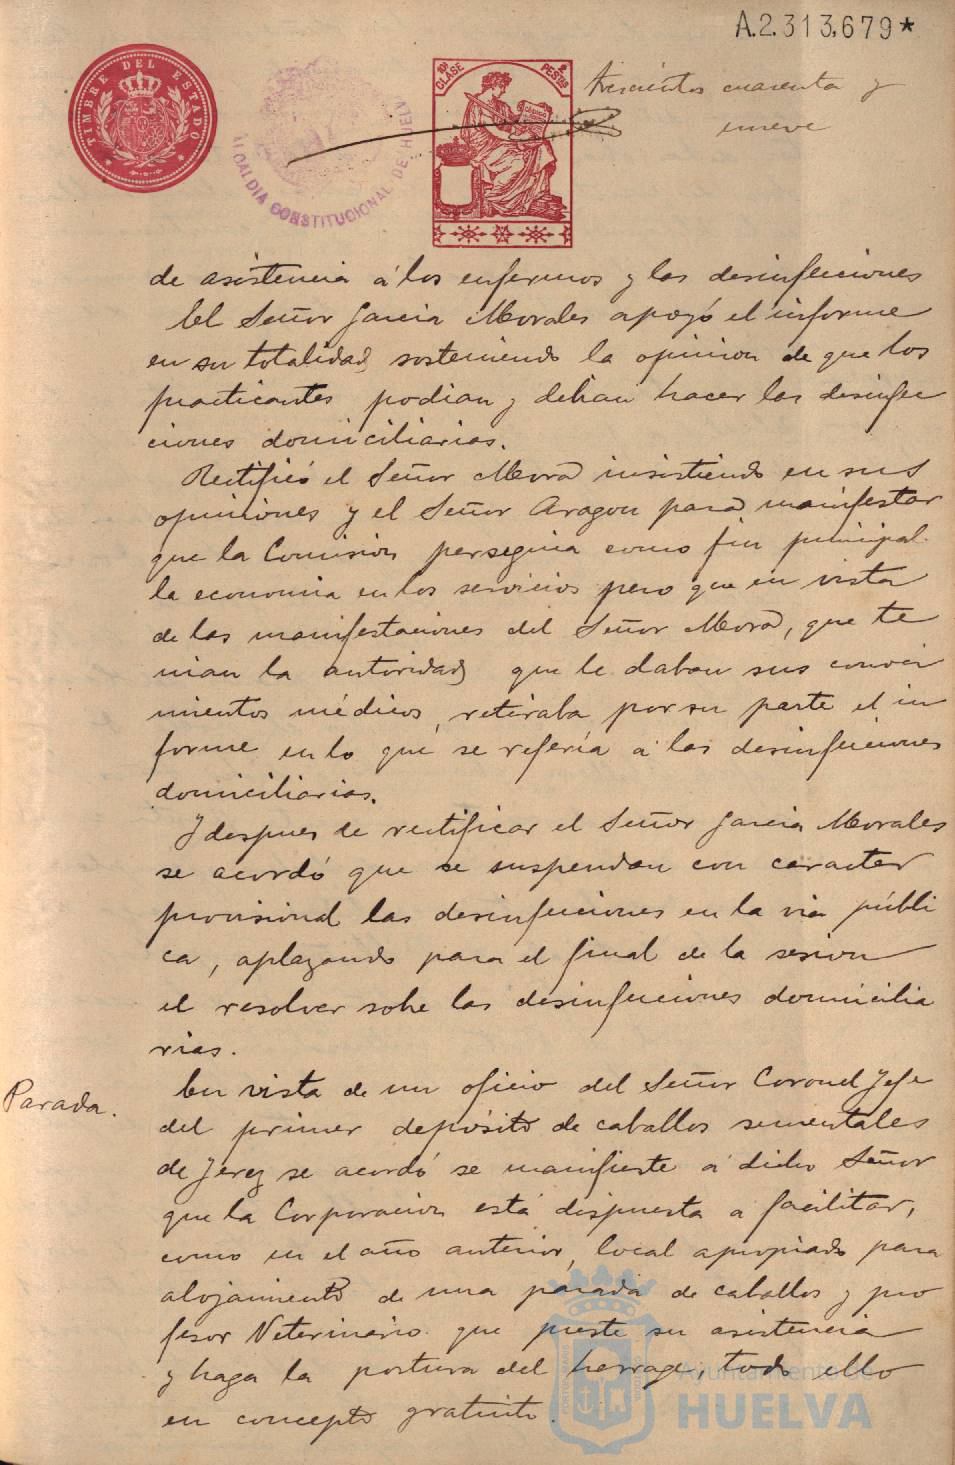 A.2.313,679*
TIMBRE DEL ESTADO
ALCALDIA CONSTITUCIONAL DE HUELVA
10ª CLASE
PESETAS
trescientos cuarenta y
nueve
de asistencia á los enfermos y las desinfecciones
El Señor Garcia Morales apoyó el informe
en su totalidad sosteniendo la opinion de que los
practicantes podian y debian hacer las desinfec
ciones domiciliarias.
Rectificó el Señor Mora insistiendo en sus
opiniones y el Señor Aragon para manifestar
que la Comision perseguia como fin principal
la economia en los servicios pero que en vista
de las manifestaciones del Señor Mora, que te
nian la autoridad que le daban sus conoci
mientos médicos, retiraba por su parte el in
forme en lo que se referia á las desinfecciones
domiciliarias.
Y despues de rectificar el Señor Garcia Morales
se acordó que se suspendan con caracter
provisional las desinfecciones en la via públi
ca, aplazando para el final de la sesion
el resolver sobre las desinfecciones domicilia
rias.
Parada.
En vista de un oficio del Señor Coronel Jefe
del primer depósito de caballos sementales
de Jerez se acordó se manifieste á dicho Señor
que la Corporacion está dispuesta a facilitar,
como en el año anterior, local apropiado para
alojamiento de una parada de caballos y pro
fesor Veterinario que preste su asistencia
y haga la postura del herrage, todo ello
en concepto gratuito.
Ayuntamiento de
HUELVA